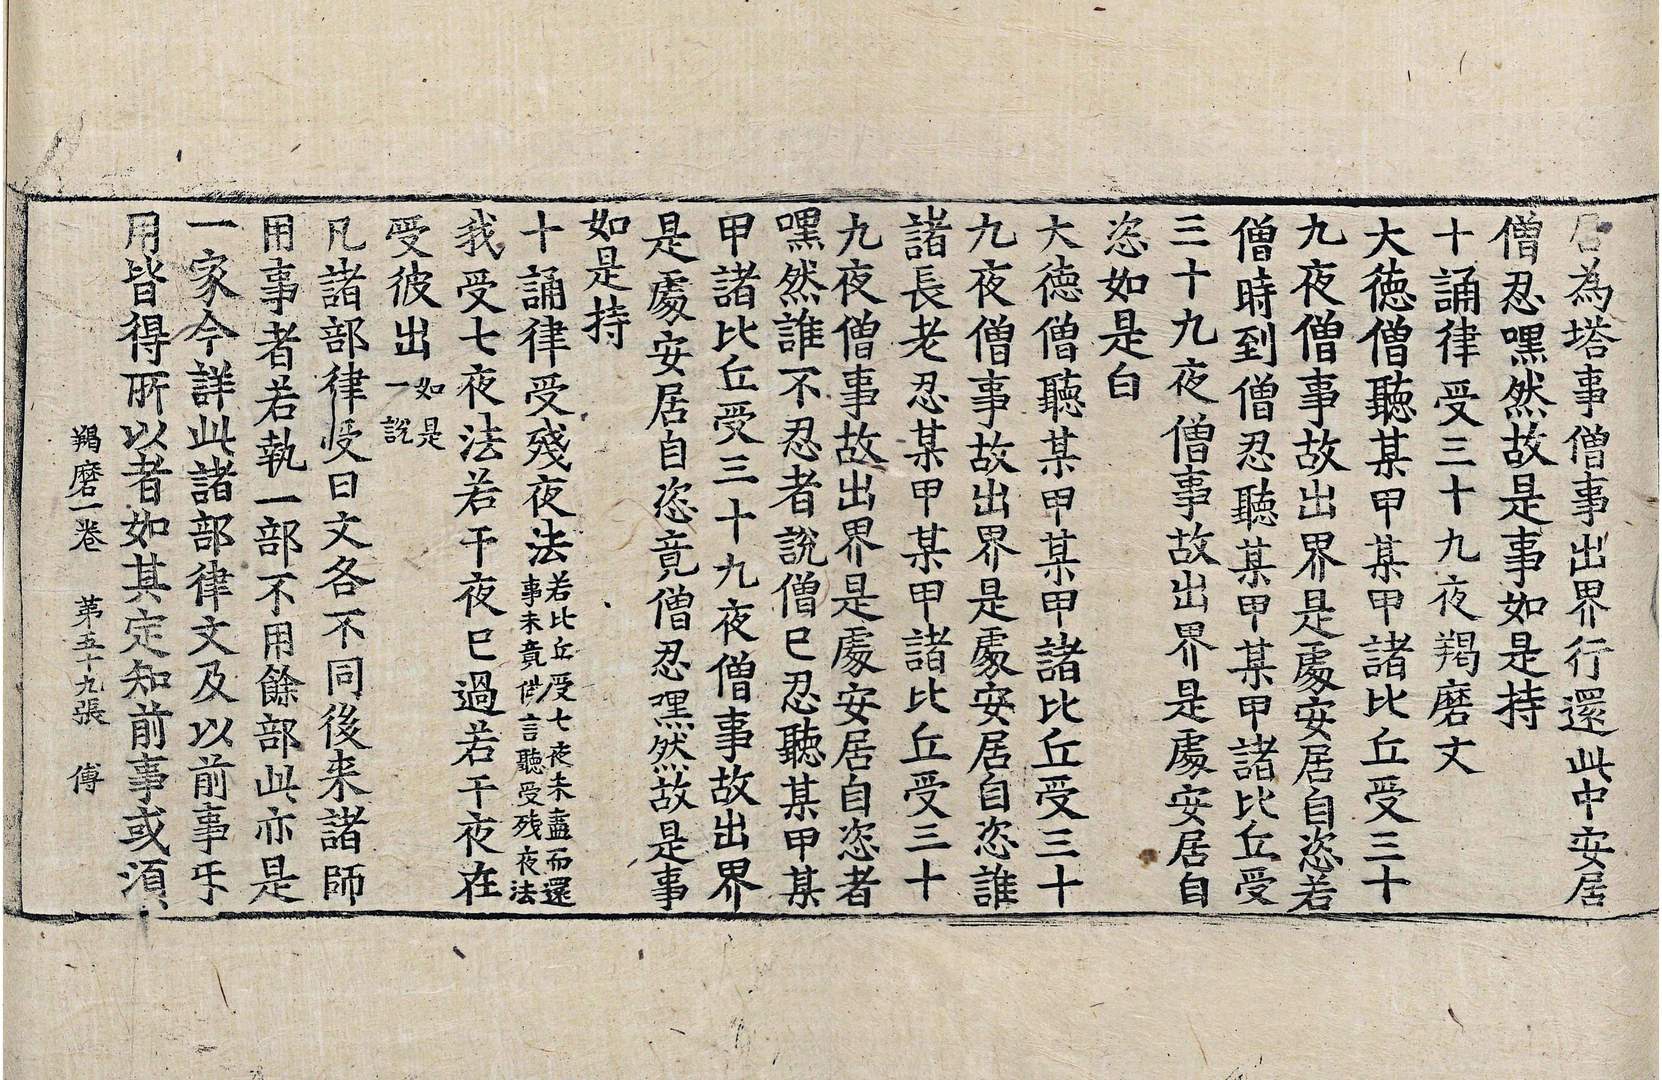 居為塔事僧事出界行還此中安居
僧忍嘿然故是事如是持
十誦律受三十九夜羯磨文
大徳僧聽某甲某甲諸比丘受三十
九夜僧事故出界是處安居自恣若
僧時到僧忍聽某甲某甲諸比丘受
三十九夜僧事故出界是處安居自
恣如是白
大徳僧聽某甲某甲諸比丘受三十
九夜僧事故出界是處安居自恣誰
諸長老忍某甲某甲諸比丘受三十
九夜僧事故出界是處安居自恣者
嘿然誰不忍者說僧巳忍聽某甲某
甲諸比丘受三十九夜僧事故出界
是處安居自恣竟僧忍嘿然故是事
如是持
十誦律受殘夜法若比丘受七夜未盡而還
事未竟佛言聽受残夜法
我受七夜法若干夜巳過若干夜在
受彼出如是
一說
凡諸部律受日文各不同後来諸師
用事者若執一部不用餘部此亦是
一家今詳此諸部律文及以前事乎
用皆得所以者如其定知前事或須
羯磨一卷 第五十九張 傅